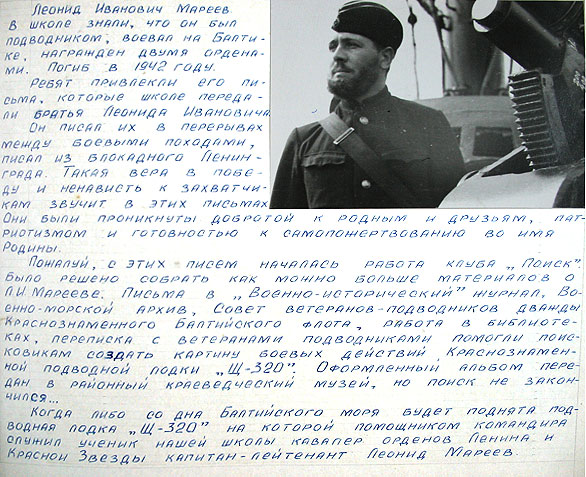 Леонид Иванович Мареев.
В школе знали, что он был
подводником, воевал на Балти-
ке, награжден двумя ордена-
ми. Погиб в 1942 году.
Ребят привлекли его пи-
сьма, которые школе переда-
ли братья Леонида Ивановича.
Он писал их в перерывах
между боевыми походами,
писал из блокадного Ленин-
града. Такая вера в побе-
ду и ненависть к захватчи-
кам звучит в этих письмах.
Они были проникнуты добротой к родным и друзьям, пат-
риотизмом и готовностью к самопожертвованию во имя
Родины.
Пожалуй, с этих писем началась работа клуба „Поиск".
Было решено собрать как можно больше материалов о
Л.И Марееве. Письма в „Военно-исторический" журнал, Во-
енно-морской архив, Совет ветеранов-подводников дважды
Краснознаменного Балтийского флота, работа в библиоте-
ках, переписка с ветеранами подводниками помогли поис-
ковикам создать картину боевых действий Краснознамен-
ной подводной лодки „Щ-320". Оформленный альбом пере-
дан в районный краеведческий музей, но поиск не закон-
чился...
Когда либо со дна Балтийского моря будет поднята под-
водная лодка „Щ-320" на которой помощником командира
служил ученик нашей школы кавалер орденов Ленина и
Красной Звезды капитан-лейтенант Леонид Мареев.